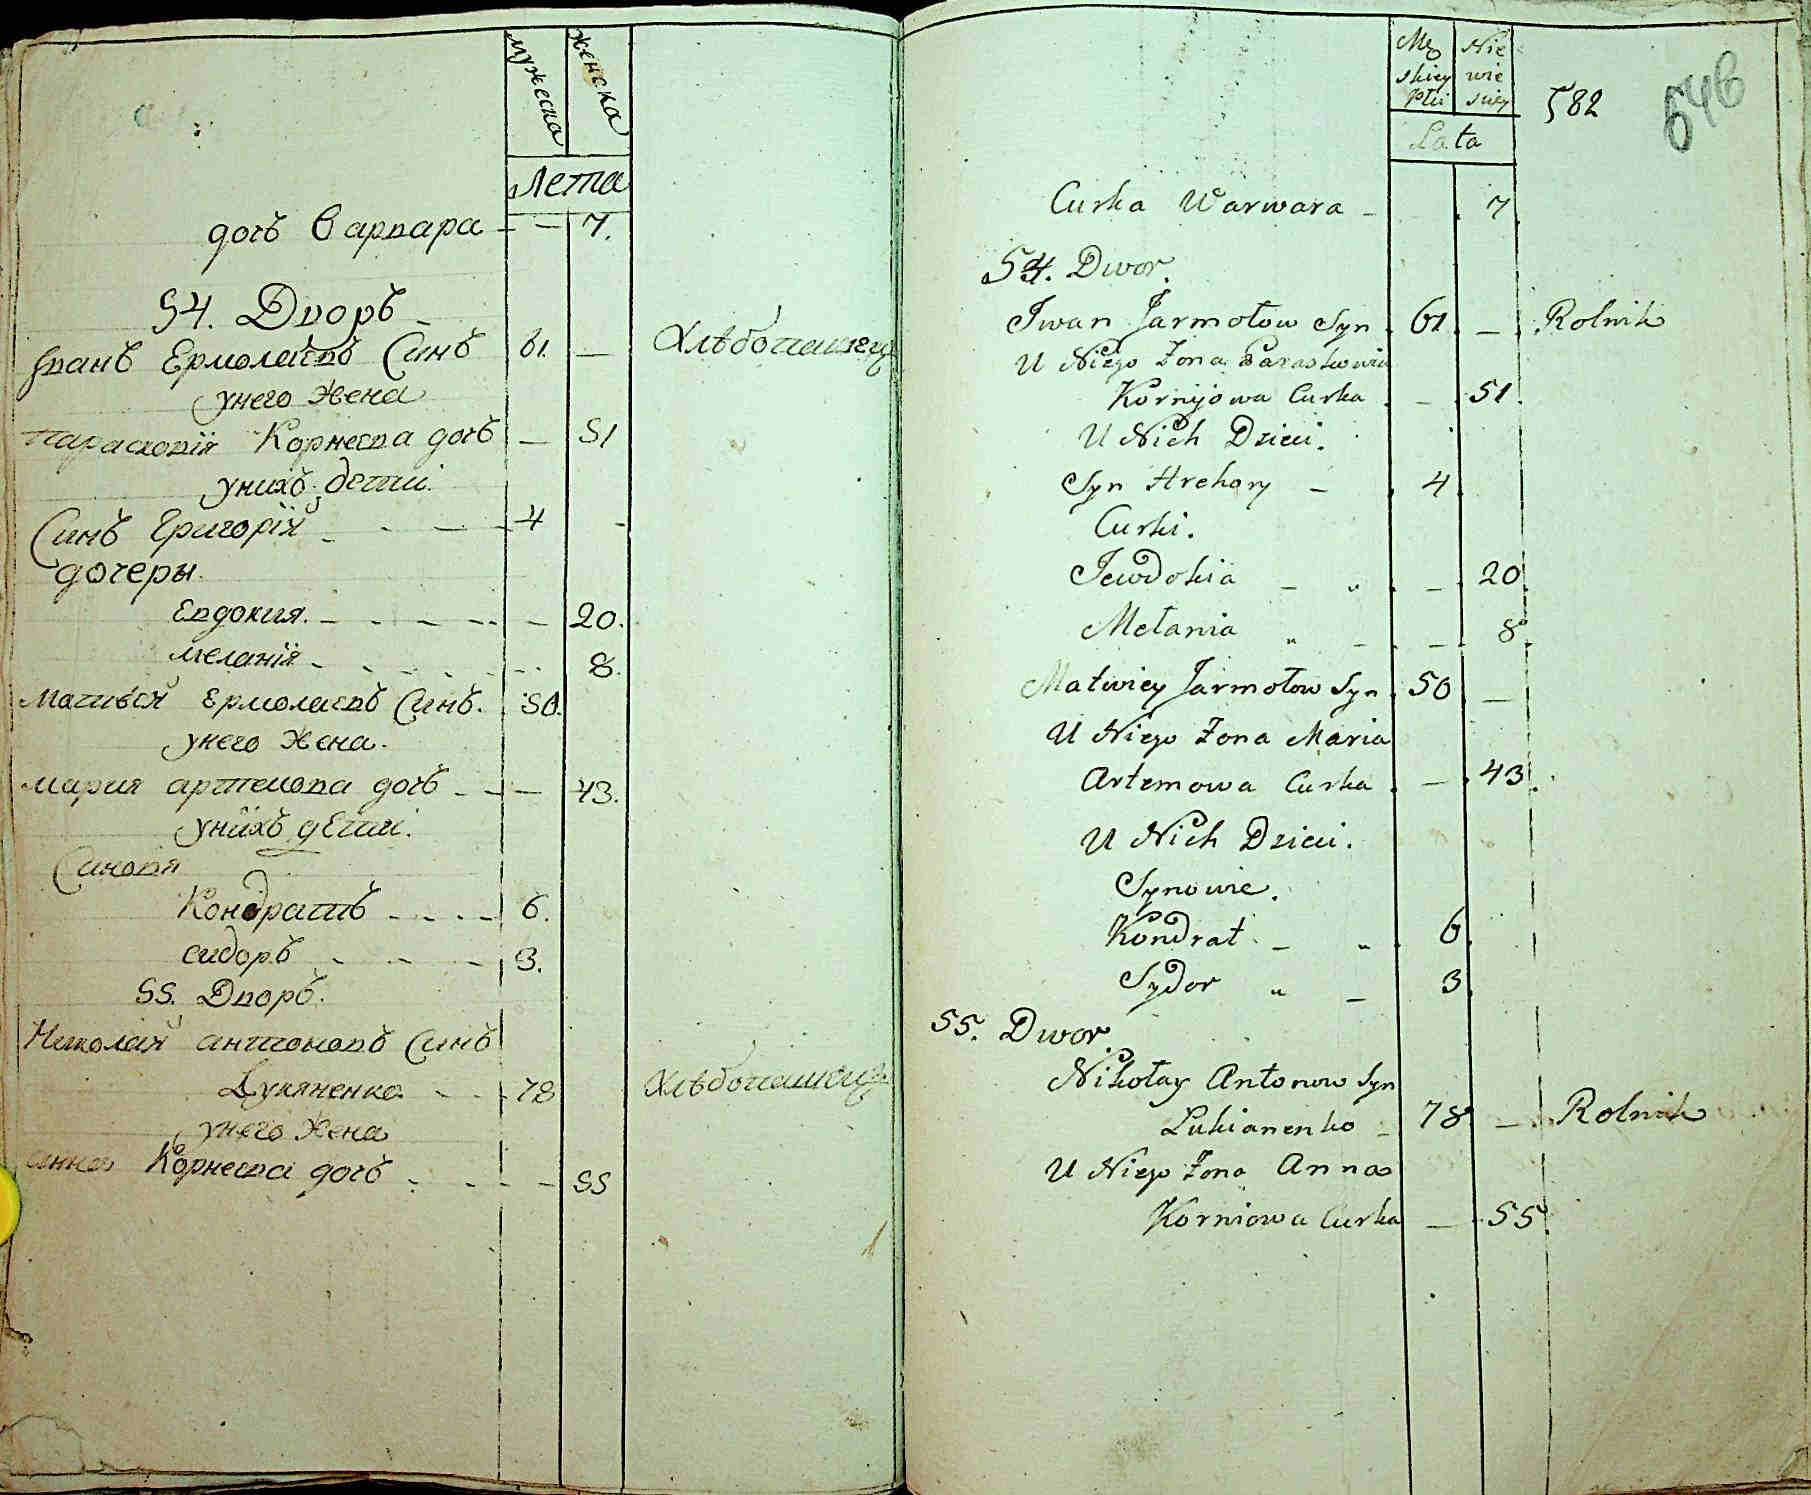 мужеска женска
Лета
дочь Варвара - - 7.
54. Дворъ
Іванъ Ермолаевъ Синъ 61. — Хлѣбопашец
унего Жена
Парасковія Корнеева дочъ — 51
унихъ дети.
Синъ Григорій - - - 4 -
дочеры.
Евдокия. - - - - - 20.
Меланія - - - - - 8.
Матвѣй Ермолаевъ Синъ. 50.
унего Жена.
Мария артемова дочъ - - - 43.
унихъ дѣти.
Синовя
Кондратъ - - - - 6.
сидоръ - - - - 3.
55. Дворъ.
Николай антоновъ Синъ
Лукяненко. - - 78 Хлѣбопашец
унего Жена
анна Корнеева дочъ - - - - 55
Mę Nie
skiey wie
Płci sciey
Lata
582
646
Curka Warwara - 7
54. Dwor.
Iwan Jarmołow Syn 61. — Rolnik
U Niego Zona Paraskowia
Kornijowa Curka — 51.
U Nich Dzieci.
Syn Hrehory - 4
Curki.
Jewdokia - „ - 20
Mełania „ - - 8
Matwiey Jarmołow Syn 50 —
U Niego Zona Maria
Artemowa Curka — 43.
U Nich Dzieci.
Synowie.
Kondrat - „ 6
Sydor „ - 3
55. Dwor
Nikołay Antonow Syn
Lukianenko - 78 — Rolnik
U Niego Zona Anna
Korniowa Curka — 55.